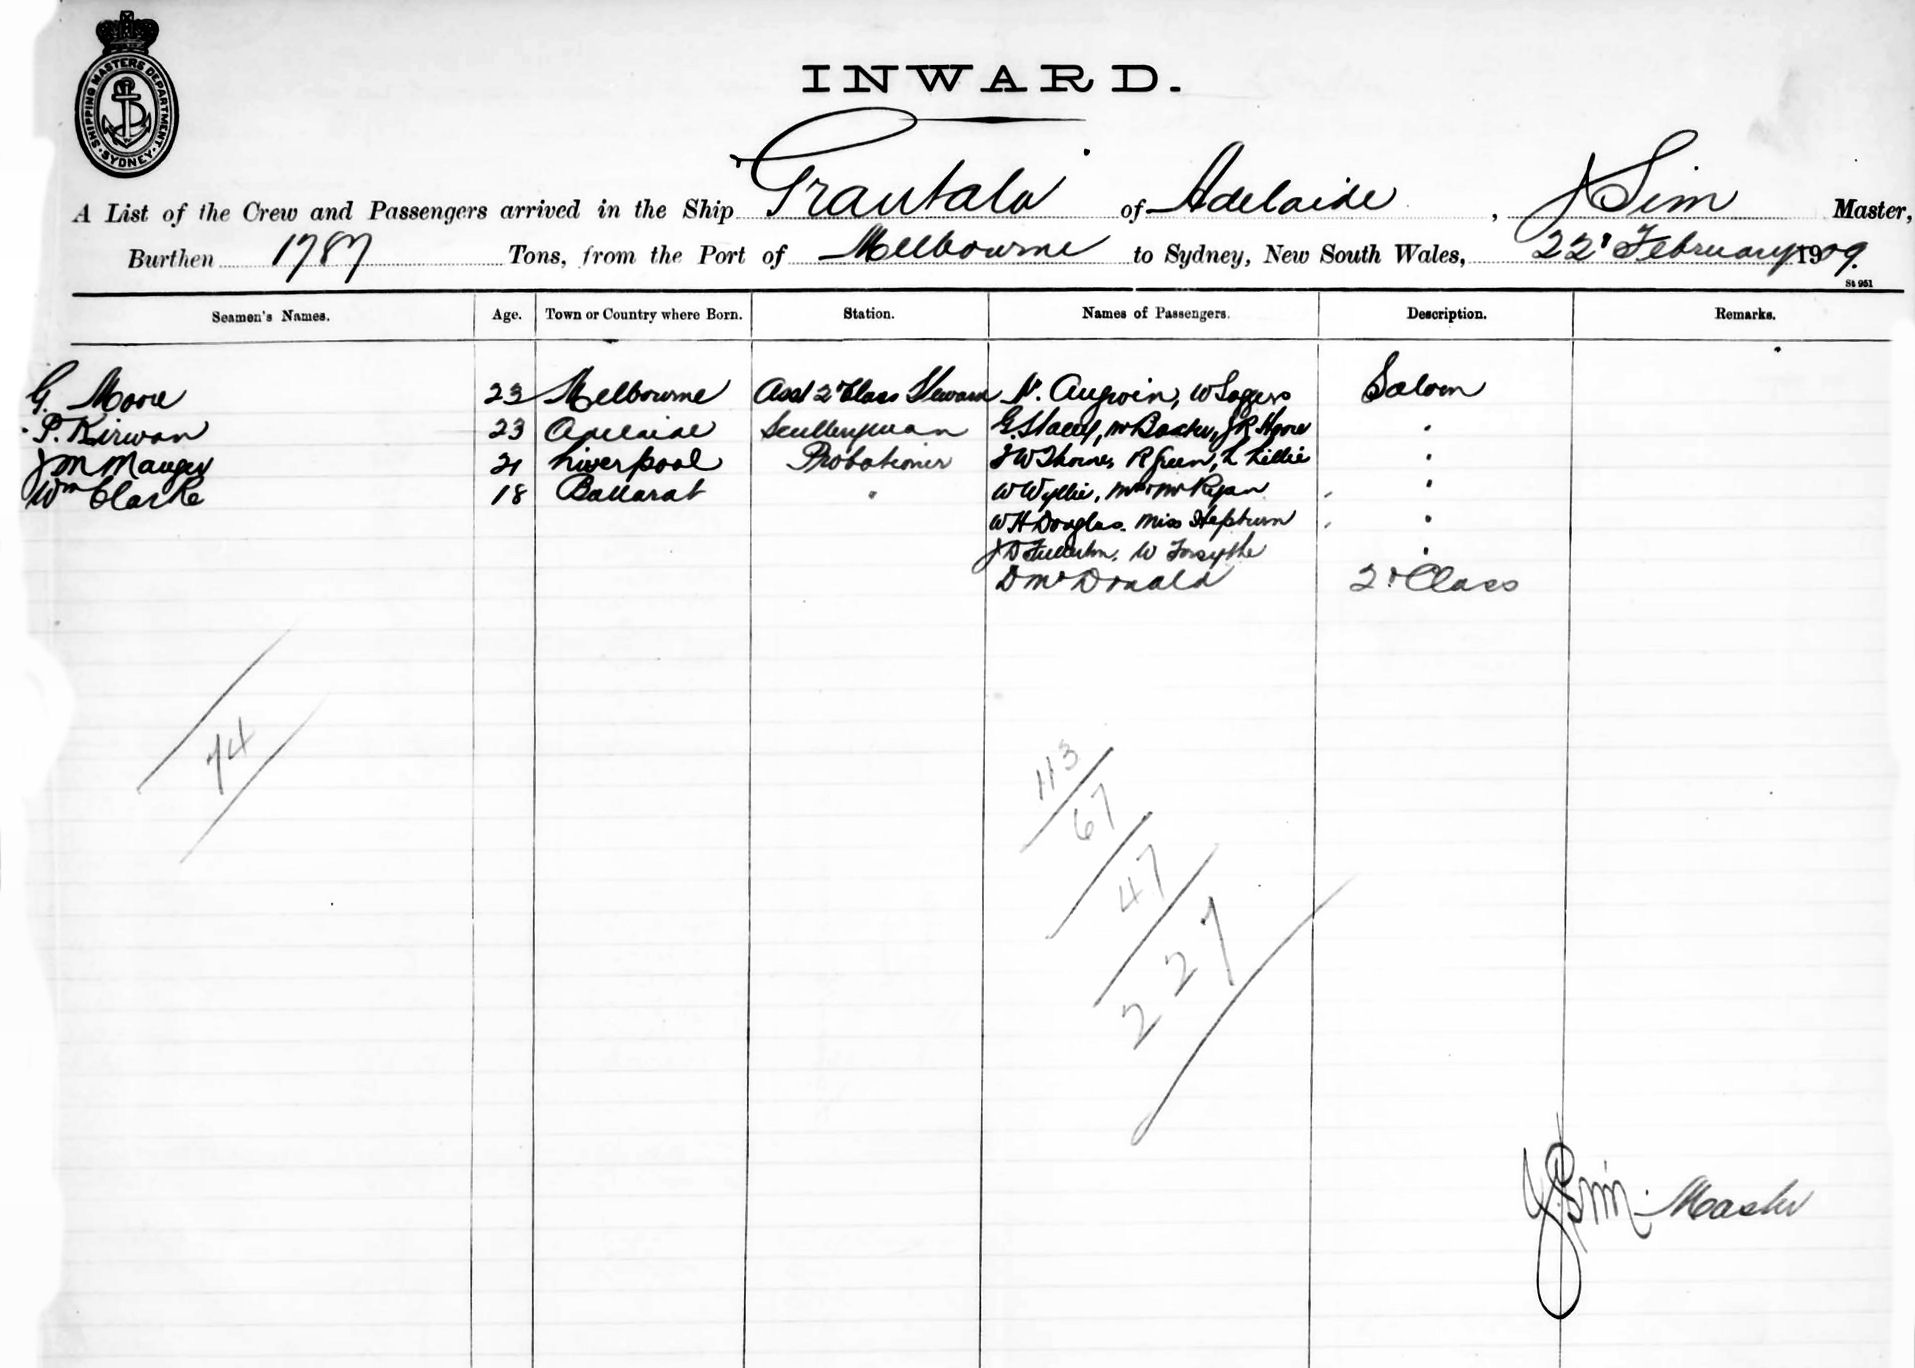 SHIPPING MASTERS DEPARTMENT
SYDNEY
INWARD.
A List of the Crew and Passengers arrived in the Ship "Grantala" of Adelaide, J Sim Master,
Burthen 1787 Tons, from the Port of Melbourne to Sydney, New South Wales, 22d February 1909.
St 951
Seamen's Names. Age. Town or Country where Born. Station. Names of Passengers. Description. Remarks.
G. Moore 23 Melbourne Asst 2d Class Steward N. Angwin, W Sagers Saloon
P. Kirwan 23 Adelaide Sculleryman G. Stacey, J R "
J M Mauger 21 Liverpool Probationer J W Thorne, R Green, L Lillie "
Wm Clarke 18 Ballarat " W Wyllie, Mr & Mrs Ryan "
W H Douglas. Miss Hepburn "
J D Fullerton. W Forsythe "
D McDonald 2d Class
74
113
67
47
227
J. Sim. Master